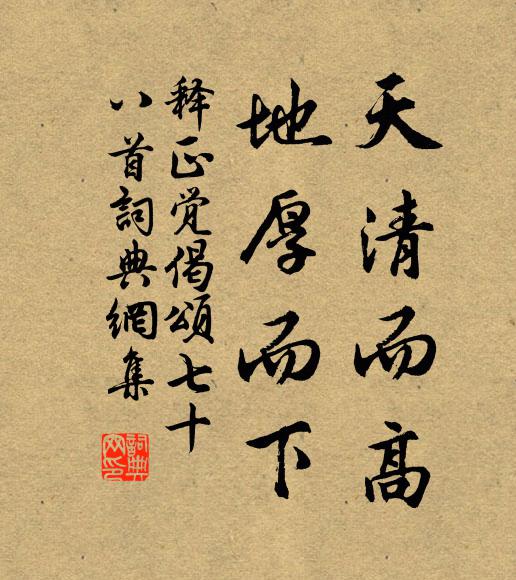 天清而高
地厚而下
释正觉偈頌七十
八首詞典網集
詞典网印